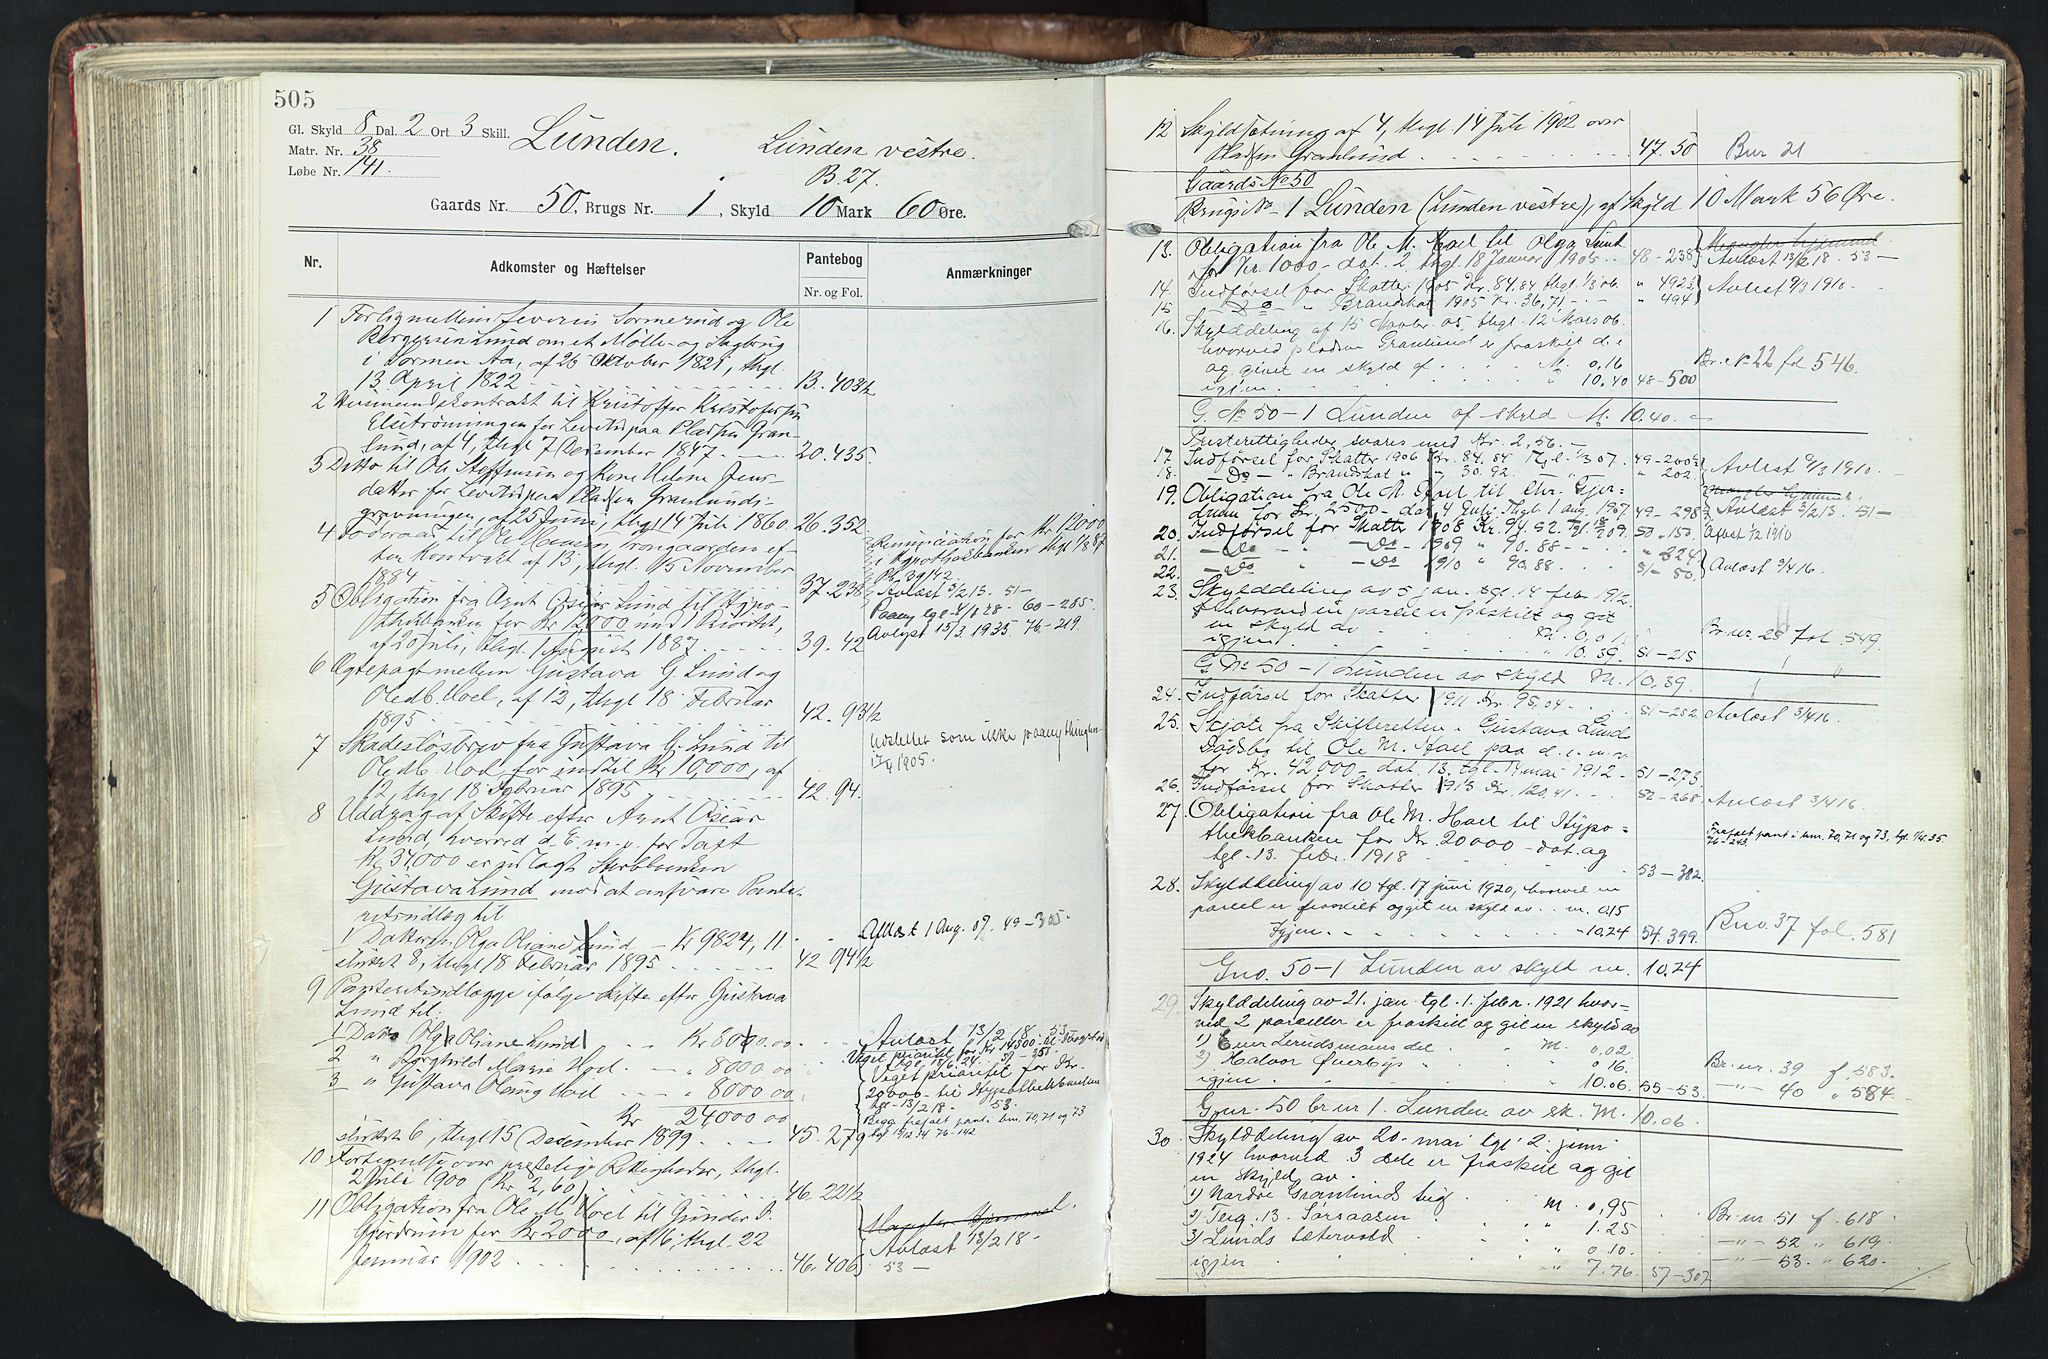 505
Gl. Skyld 8 Dal. 2 Ort 3 Skill.
Matr. Nr. 38
Løbe Nr. 141.
Lunden. Lunden vestre.
B. 27.
Gaards Nr. 50, Brugs Nr. 1, Skyld 10 Mark 60 Øre.
Nr. Adkomster og Hæftelser Pantebog Anmærkninger
Nr. og Fol.
1 Forlig mellem Severin Sørmerud og Ole
Bergersen Lund om et Mølle- og Sagbrug
i Sormen Aa, af 26 Oktober 1821, thgl.
13 April 1822 B. 403½
2 Husmandskontrakt til Kristoffer Kristofersen
for Levetid paa Pladsen Gran-
lund, af 4, thgl 7 December 1847. 20.435.
3 Ditto til Ole Steffensen og Kone Helene Jens-
datter for Levetid paa Pladsen Granlunds-
gravningen, af 25 Juni, thgl 14 Juli 1860 26.352.
4 Føderaad til Ole Hansen Trongaarden ef-
ter Kontrakt af 13, thgl 15 November
1884 37.238
Renunciation for Kr 12000
i Hypothekbanken thgl 1/8 87
Pb. 39.42
5 Obligation fra Arnt Oscar Lund til Hypo-
thekbanken for Kr 12000 med 1 Prioritet,
af 20 Juli, thgl. 1 August 1887. 39.42
Avlæst 3/2 13. 51—
Paany tgl 4/1 28 - 60-285.
Avlyst 15/3. 1935. 76-219.
6 Ægtepagt mellem Gustava G. Lund og
Ole M. Hoel, af 12, thgl 18 Februar
1895 42.93½
7 Skadesløsbrev fra Gustava G. Lund til
Ole M. Hoel for indtil Kr 10,000, af
12, thgl 18 Februar 1895 42.94.
Udslettet som ikke paany thinglæst
17/4 1905.
8 Uddrag af Skifte efter Arnt Oscar
Lund, hvorved d. E. m. p. for Taxt
Kr. 34,000 er udlagt Sterbbenken
Gustava Lund mod at ansvare Pante-
retsudlæg til
1 Datteren Olga Oliane Lund - Kr 9824,11
sluttet 8, thgl 18 Februar 1895 42 94½
Aflæst 1 Aug. 07. 49-305.
9 Panteretsudlægge ifølge Skifte efter Gustava
Lund til:
1 Datter Olga Oliane Lund Kr 8000.00
2 " Borghild Marie Hoel - " 8000 00
3 " Gustava Hoel - " 8000 00
Kr 24000 00
sluttet 6, thgl 15 December 1899 45.279
Avlæst 13/2 18 53
Veget prioritet for Kr 14500
Veget prioritet for Kr.
20000 til Hypothekbanken
tgl. 13/2 18 - 53.
Begge frafalt pant i bnr. 70, 71 og 73
tgl 76-142
10 Fortegnelse over præstelige Rettigheder, thgl.
2 Juli 1900 (Kr 2,60) 46.22½
11 Obligation fra Ole M. Hoel til Gunder P.
Gjerdrum for Kr 2000, af 6, thgl. 22
Januar 1902 46.406
Mangler Hjemmel.
Avlæst 13/2 18.
53 —
12 Skyldsætning af 4, thgl. 14 Juli 1902 over
Pladsen Granlund 47.50 Bnr 21
Gaards No 50
Brugs No 1 Lunden (Lunden vestre), af Skyld 10 Mark 56 Øre.
13. Obligation fra Ole M. Hoel til Olga Lund
for Kr. 1000 - dat. 2 thgl. 18 Januar 1905 48-238
Mangler hjemmel.
Avlæst 13/2 18. 53—
14. Indførsel for Skatter 1905 Kr. 84,84 thgl. 1/3 06. " 492
15 - Do - " Brandskat 1905 Kr. 36,71 " 494
Avlæst 9/3 1910.
16. Skylddeling af 15 Novbr. 05 thgl. 12 Mars 06.
hvorved pladsen Granlund er fraskilt d. e
og givet en skyld af M. 0,16
igjen " 10.40 48-500
Br. No 22 fol 546.
G. No 50-1 Lunden af skyld M. 10.40.
Presterettigheder svares med Kr. 2,56.
17. Indførsel for Skatter 1906 Kr. 84,84 Thgl. 1/3 07. 49-200
18. - Do - Brandskat " " 30.92. " 202
Avlæst 9/3 1910.
19. Obligation fra Ole M. Hoel til Chr. Gjer-
drum for Kr. 2500 - dat 4 Juli thgl 1 aug. 1907 49-298
Mangler hjemmel.
Avlæst 3/2 13. 51—
20. Indførsel for Skatter 1908 Kr. 94.82 tgl. 18/2 09. 50-150.
Aflæst 1/2 1910
21. - Do - " - Do - 1909 " 90.88 " 324
22. - Do - " - Do - 1910 " 90,88 51-50.
Avlæst 3/4 16.
23. Skylddeling av 5 jan. tgl. 14 febr. 1912.
hvorved en parcel er fraskilt og git
en skyld av Kr. 0,01.
igjen " 10.39. 51-215
Br. nr. 28 fol. 549.
G No 50-1 Lunden av skyld M. 10,39.
24. Indførsel for Skatter 1911 Kr. 95,04 51-252
Avlæst 3/4 16.
25. Skjøte fra Skifteretten i Gustava Lunds
Dødsbo til Ole M. Hoel paa d. e. m. m
for Kr. 42000 - dat. 13. tgl. 14 mai 1912 - 51-273
26. Indførsel for Skatter 1913 Kr. 120,41 52-268
Avlæst 3/4 16.
27. Obligation fra Ole M. Hoel til Hypo-
thekbanken for Kr. 20000 - dat. og
tgl. 13. febr. 1918 53-382.
Frafalt pant i bnr. 70, 71 og 73, tgl. 35.
76-243.
28. Skylddeling av 10 tgl. 17 juni 1920, hvorved en
parcel er fraskilt og git en skyld av m. 0,15
Igjen 10,24 54.399.
Bno. 37 fol. 581
Gno. 50-1 Lunden av skyld m. 10,24
29. Skylddeling av 21. jan. tgl. 1. febr. 1921 hvor-
ved 2 parceller er fraskilt og git en skyld av
1) Lensmanns del M. 0,02
2) Halvor Øverbys " 0 16.
igjen " 10.06. 55-53.
Br. nr. 39 f. 583.
" 40 " 584
Gnr. 50 br nr 1. Lunden av sk. M. 10,06.
30. Skylddeling av 20. mai tgl. 2. juni
1924 hvorved 3 dele er fraskilt og git
en skyld av
1) Nordre Granlunds M. 0,95
2) Teig 13. Sørsaasen " 1.25
3) Lunds Sætervold " 0.10.
igjen " 7.76. 57-307
Br. nr. 51 f. 618
-"- 52 " 619
-"- 53. " 620.